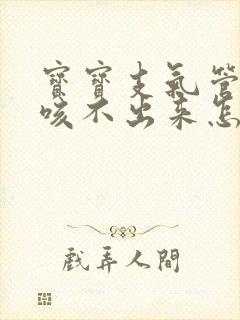 寶寶支氣管
咳不出來怎
戲弄人間